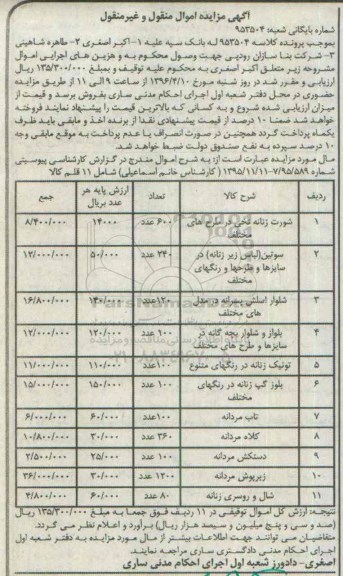 آگهی مزایده اموال منقول و غیرمنقول
شماره بایگانی شعبه: ۹۵۳۵۰۴
بموجب پرونده کلاسه ۹۵۳۵۰۴ له بانک سپه علیه ۱-اکبر اصغری ۲- طاهره شاهینی
۳- شرکت بنا سازان رودپی جهت وصول محکوم به و هزین های اجرایی اموال
مشروحه زیر متعلق اکبر اصغری به محکوم علیه توقیف و بمبلغ ۱۳۵/۳۰۰/۰۰۰ ریال
ارزیابی و مقرر شد در روز شنبه مورخ ۱۳۹۶/۴/۱۰ از ساعت ۹ الی ۱۱ از طریق مزایده
حضوری در محل دفتر شعبه اول اجرای احکام مدنی ساری بفروش برسد و قیمت از
میزان ارزیابی شده شروع و به کسانی که بالاترین قیمت را پیشنهاد نمایند فروخته
خواهد شد ضمنا ۱۰ درصد از قیمت پیشنهادی نقدا از برنده اخذ و مابقی باید ظرف
یکماه پرداخت گردد همچنین در صورت انصراف یا عدم پرداخت به موقع مابقی وجه
۱۰ درصد سپرده به نفع صندوق دولت ضبط خواهد شد.
مال مورد مزایده عبارت است از: به شرح اموال مندرج در گزارش کارشناسی پیوستی
شماره ۷/۹۵/۵۸۹-۱۳۹۵/۱۱/۱۱ ( کارشناس خانم اسماعیلی) شامل ۱۱ قلم کالا
ردیف شرح کالا تعداد ارزش پایه هر عدد بریال جمع
۱ شورت زنانه نخی در طرح های مختلف ۶۰۰ عدد ۱۴۰۰۰ ۸/۴۰۰/۰۰۰
۲ سوتین(لباس زیر زنانه) در سایزها و طرحها و رنگهای مختلف ۲۴۰ عدد ۵۰/۰۰۰ ۱۲/۰۰۰/۰۰۰
۳ شلوار اسلش پسرانه در مدل های مختلف ۱۲۰عدد ۱۴۰/۰۰۰ ۱۶/۸۰۰/۰۰۰
۴ بلواز و شلوار بچه گانه در سایزها و طرح های مختلف ۱۰۰ عدد ۱۲۰/۰۰۰ ۱۲/۰۰۰/۰۰۰
۵ تونیک زنانه در رنگهای متنوع ۱۰۰عدد ۱۱۰/۰۰۰ ۱۱/۰۰۰/۰۰۰
۶ بلوز گپ زنانه در رنگهای مختلف ۱۰۰ عدد ۱۵۰/۰۰۰ ۱۵/۰۰۰/۰۰۰
۷ تاب مردانه ۱۰۰عدد ۶۰/۰۰۰ ۶/۰۰۰/۰۰۰
۸ کلاه مردانه ۳۶۰ عدد ۳۰/۰۰۰ ۱۰/۸۰۰/۰۰۰
۹ دستکش مردانه ۱۰۰ عدد ۲۵/۰۰۰ ۲/۵۰۰/۰۰۰
۱۰ زیرپوش مردانه ۱۲۰۰ عدد ۳۰/۰۰۰ ۳۶/۰۰۰/۰۰۰
۱۱ شال و روسری زنانه ۸۰ عدد ۶۰/۰۰۰ ۴/۸۰۰/۰۰۰
نتیجه: ارزش کل اموال توقیفی در ۱۱ ردیف فوق جمعا به مبلغ ۱۳۵/۳۰۰/۰۰۰ ریال
(صد و سی و پنج میلیون و سیصد هزار ریال) برآورد و اعلام نظر می گردد.
متقاضیان می توانند جهت اطلاعات بیشتر از مال مورد مزایده به دفتر شعبه اول
اجرای احکام مدنی دادگستری ساری مراجعه نمایند.
اصغری- دادورز شعبه اول اجرای احکام مدنی ساری